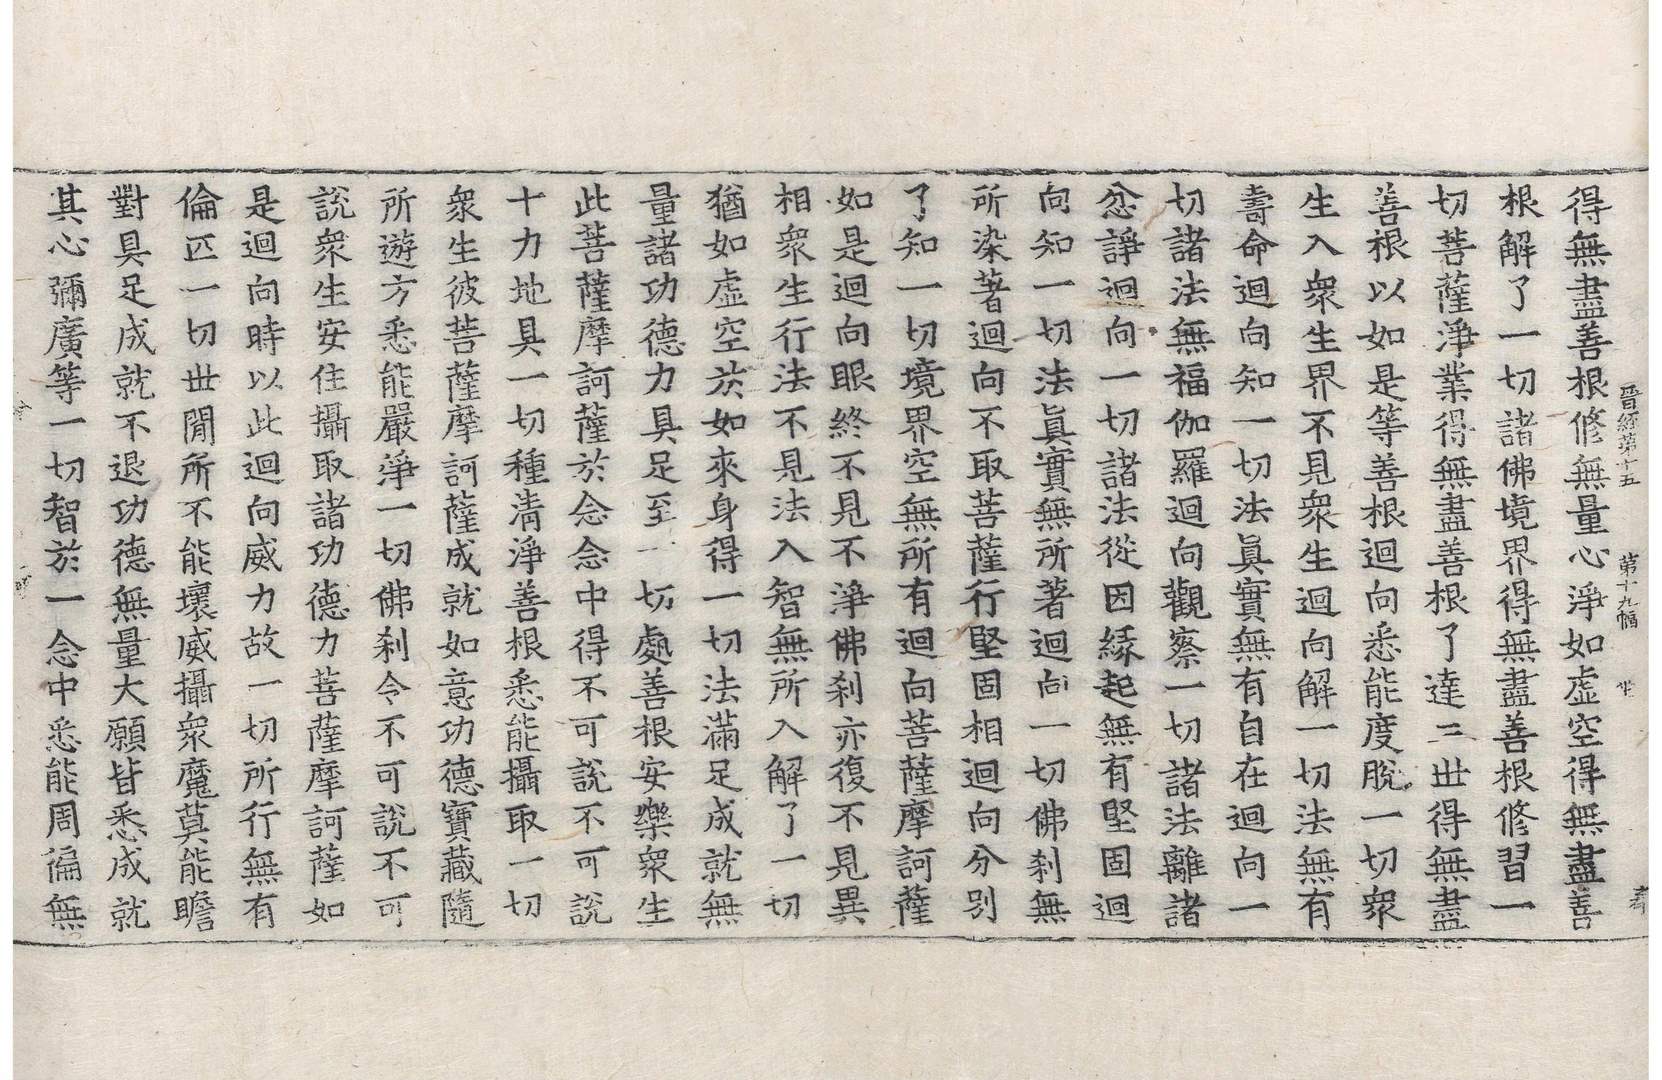 晉經第十五 第十九幅 坐
得無盡善根修無量心淨如虛空得無盡善
根解了一切諸佛境界得無盡善根修習一
切菩薩淨業得無盡善根了達三世得無盡
善根以如是等善根迴向悉能度脫一切衆
生入衆生界不見衆生迴向解一切法無有
壽命迴向知一切法眞實無有自在迴向一
切諸法無福伽羅迴向觀察一切諸法離諸
忿諍迴向一切諸法從因緣起無有堅固迴
向知一切法眞實無所著迴向一切佛刹無
所染著迴向不取菩薩行堅固相迴向分別
了知一切境界空無所有迴向菩薩摩訶薩
如是迴向眼終不見不淨佛刹亦復不見異
相衆生行法不見法入智無所入解了一切
猶如虛空於如來身得一切法滿足成就無
量諸功德力具足至一切處善根安樂衆生
此菩薩摩訶薩於念念中得不可說不可說
十力地具一切種淸淨善根悉能攝取一切
衆生彼菩薩摩訶薩成就如意功德寶藏隨
所遊方悉能嚴淨一切佛刹令不可說不可
說衆生安住攝取諸功德力菩薩摩訶薩如
是迴向時以此迴向威力故一切所行無有
倫匹一切世間所不能壞威攝衆魔莫能瞻
對具足成就不退功德無量大願皆悉成就
其心彌廣等一切智於一念中悉能周徧無